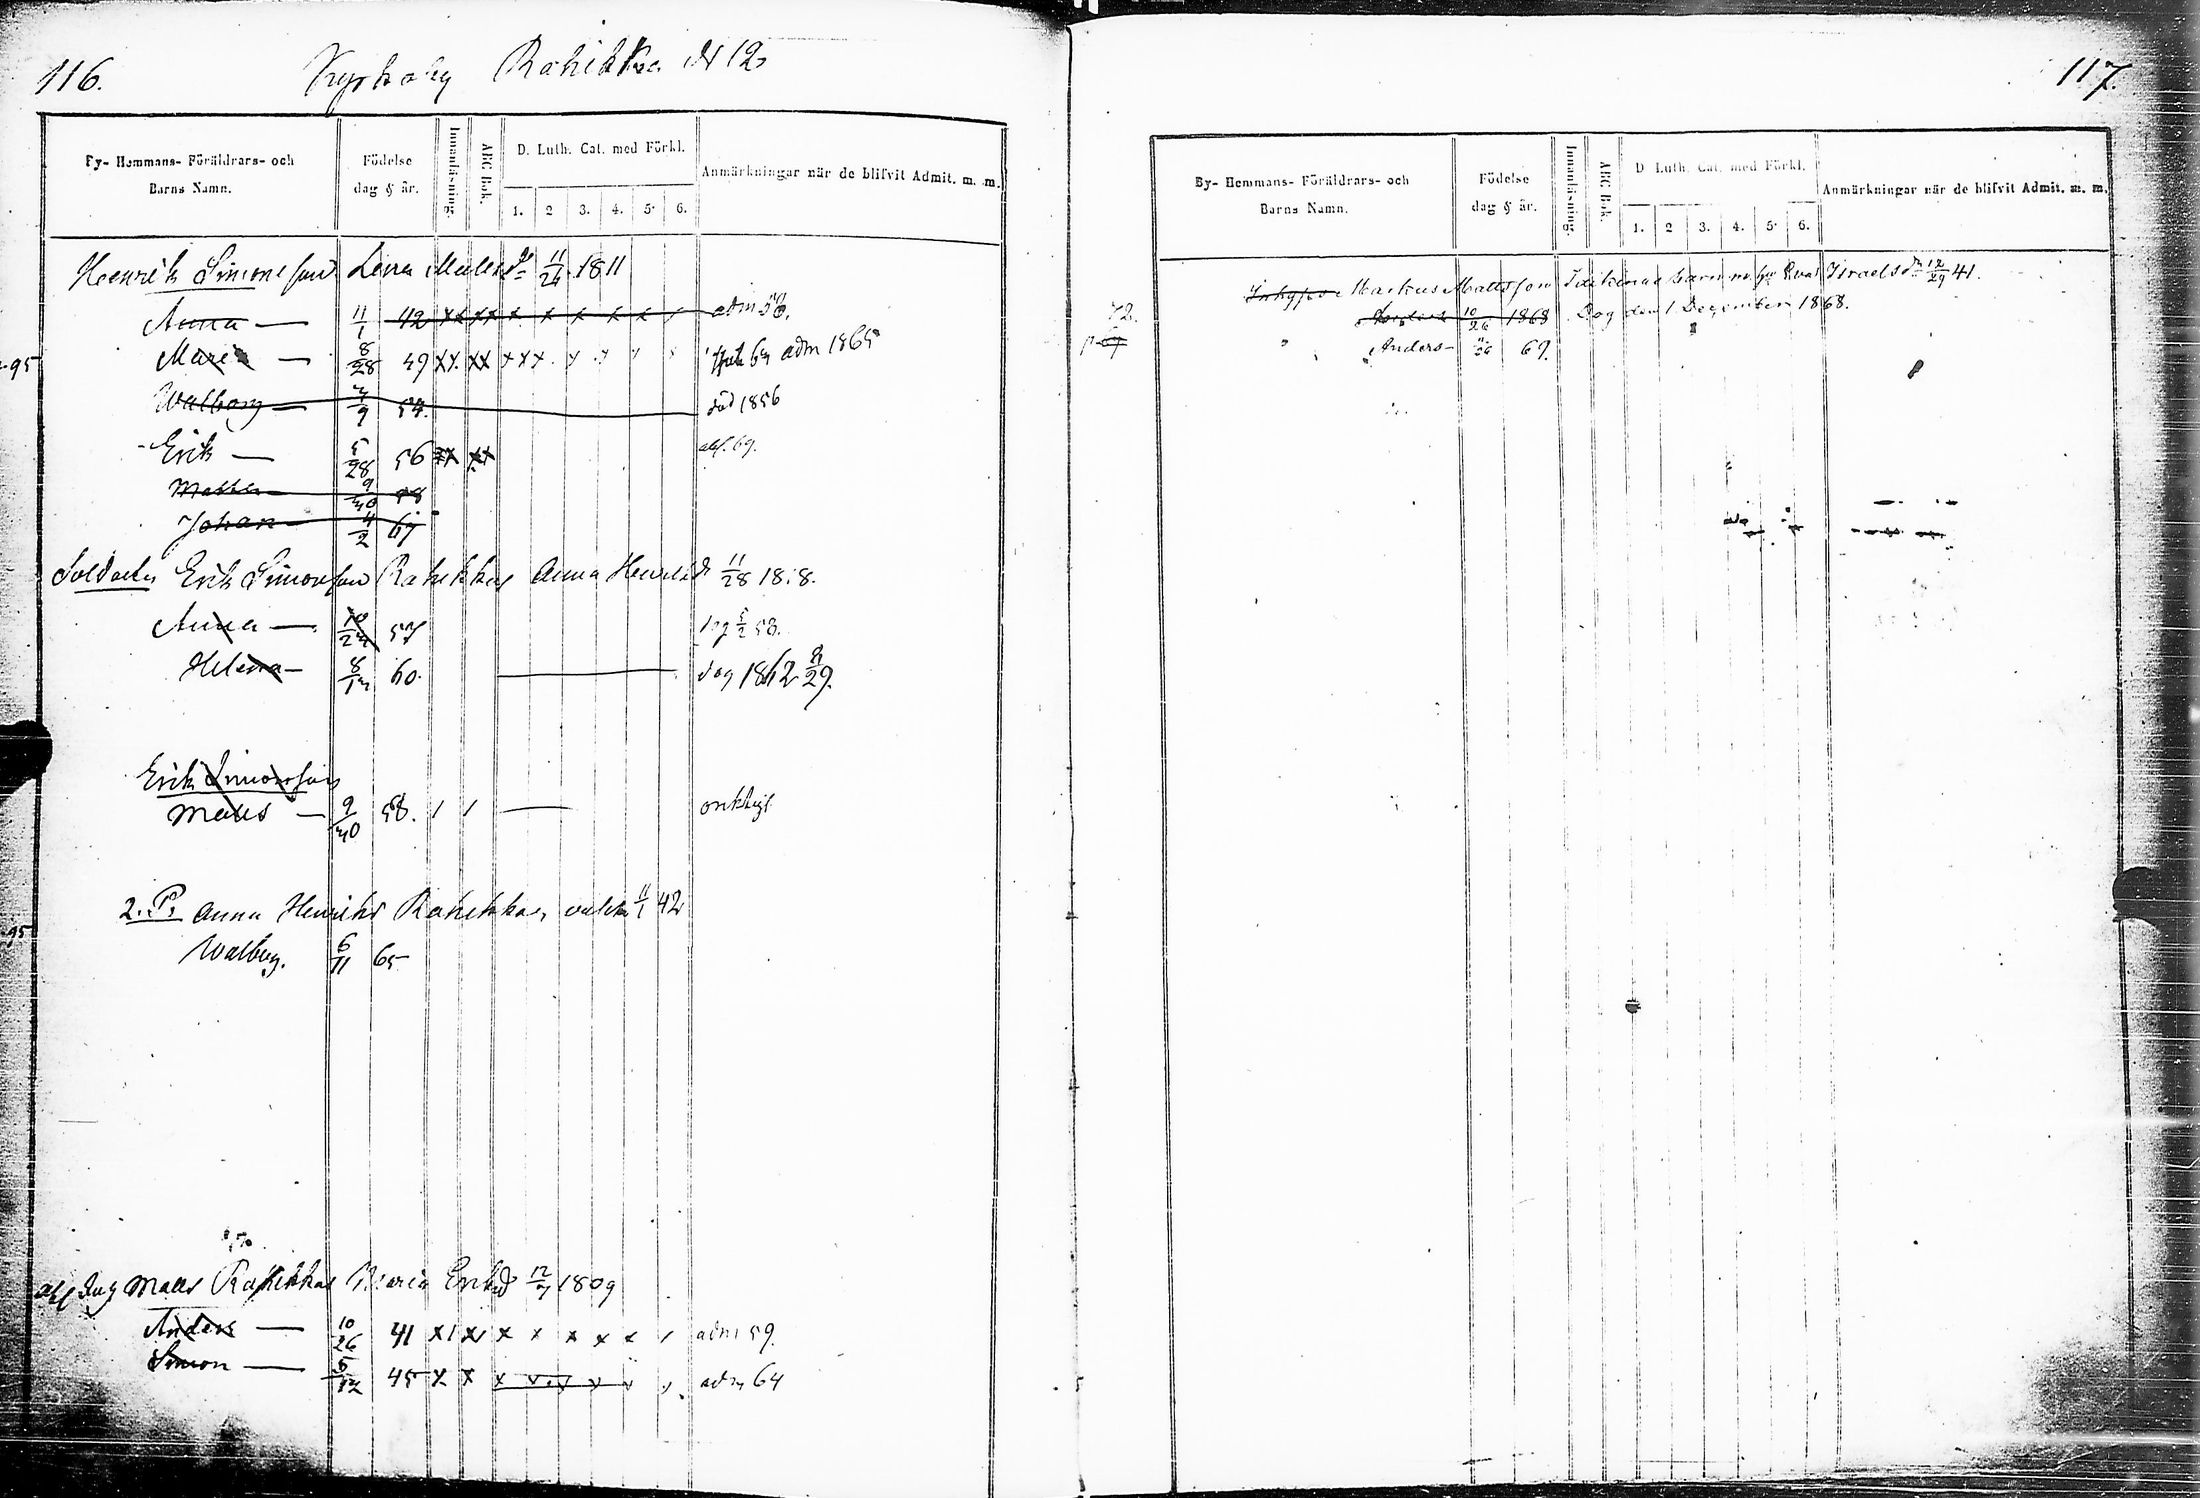 116. Kyrkoby Rahikka N 12
By- Hemmans- Föräldrars- och Barns Namn.
Födelse dag & år.
Innanläsning.
ABC Bok.
D. Luth. Cat. med Förkl.
1. 2 3. 4. 5. 6.
Anmärkningar när de blifvit Admit. m. m.
Henrik Simonsson Lena Mattsdr 11/24 1811
Anna — 11/1 42 adm 58.
95 Maria — 8/28 49 adm 1865
Walborg — 54. död 1856
Erik — 5/28 56 69.
Matts — 9/30 58
Johan — 4/2 67
Soldaten Erik Simonsson Rahikka Anna Henriksdr 11/28 1818.
Anna — 57 dog 5/2 58.
Helena — 60. dog 1862 8/29.
Erik Simonsson
Matts — 9/30 58.
2. P. Anna Henriksd Rahikka, 11/1 42
95 Walborg. 6/11 65
Matts Rahikka Maria Eriksd 1809
Anders — 10/26 41 adm 59.
Simon — 45 adm 64
117.
By- Hemmans- Föräldrars- och Barns Namn.
Födelse dag & år.
Innanläsning.
ABC Bok.
D. Luth. Cat. med Förkl.
1. 2 3. 4. 5. 6.
Anmärkningar när de blifvit Admit. m. m.
Inhyses Markus Mattsson Israelsdr 12/29 41.
72. 10/26 1868 Dog den 1 December 1868.
p 69 Anders — 69.